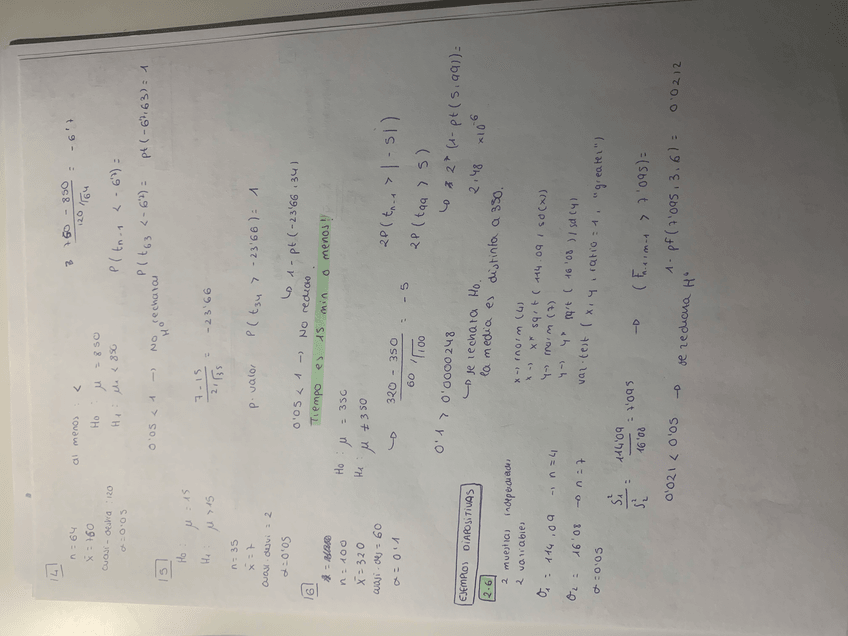 14
n = 64
x̄ = 760
cuasi-desvia = 120
α = 0'05
al menos <
H0: μ = 850
H1: μ < 850
0'05 < 1 → No rechazar H0
760 - 850 / 120/√64 = -6'7
P(t n-1 < -6'7) =
P(t63 < -6'7) = pt(-6'7, 63) = 1
15
H0 μ = 15
H1: μ > 15
n = 35
x̄ = 7
cuasi-desvi = 2
α = 0'05
7 - 15 / 2/√35 = -23'66
p-valor P(t34 > -23'66) = 1
↳ 1 - pt(-23'66, 34)
0'05 < 1 → No rechazo
Tiempo es 15 min o menos!!
16
n = 100
x̄ = 320
cuasi-des = 60
α = 0'1
H0: μ = 350
H1: μ ≠ 350
↳ 320 - 350 / 60/√100 = -5
2P(t n-1 > |-5|)
2P(t99 > 5)
↳ 2*(1-pt(5,99)) =
2,48 x10^-6
0'1 > 0'0000248
↳ se rechaza H0,
la media es distinta a 350.
EJEMPLOS DIAPOSITIVAS
2.6
2 muestras independientes
2 variables
σ1 = 114,09 → n = 4
σ2 = 16'08 → n = 7
α = 0'05
x → rnorm(4)
x → x* sqrt(114,09)/sd(x)
y → rnorm(7)
y → y* sqrt(16'08)/sd(y)
var.test(x, y, ratio = 1, "greater")
S1²/S2² = 114'09/16'08 = 7'095 → (F n-1, m-1 > 7'095) =
1 - pf(7'095, 3, 6) = 0'0212
0'021 < 0'05 → se rechaza H0